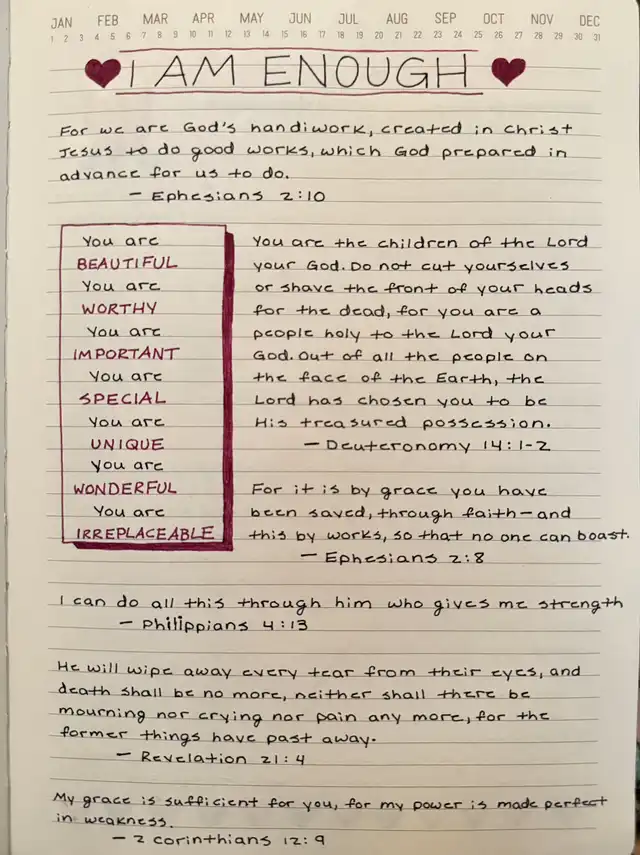 JAN FEB MAR APR MAY JUN JUL AUG SEP OCT NOV DEC
1 2 3 4 5 6 7 8 9 10 11 12 13 14 15 16 17 18 19 20 21 22 23 24 25 26 27 28 29 30 31
I AM ENOUGH
For we are God's handiwork, created in Christ
Jesus to do good works, which God prepared in
advance for us to do.
- Ephesians 2:10
You are
BEAUTIFUL
You are
WORTHY
You are
IMPORTANT
You are
SPECIAL
You are
UNIQUE
You are
WONDERFUL
You are
IRREPLACEABLE
You are the children of the Lord
your God. Do not cut yourselves
or shave the front of your heads
for the dead, for you are a
people holy to the Lord your
God. Out of all the people on
the face of the Earth, the
Lord has chosen you to be
His treasured possession.
- Deuteronomy 14:1-2
For it is by grace you have
been saved, through faith-and
this by works, so that no one can boast.
- Ephesians 2:8
I can do all this through him who gives me strength
- Philippians 4:13
He will wipe away every tear from their eyes, and
death shall be no more, neither shall there be
mourning nor crying nor pain any more, for the
former things have past away.
- Revelation 21:4
My grace is sufficient for you, for my power is made perfect
in weakness.
- 2 Corinthians 12:9